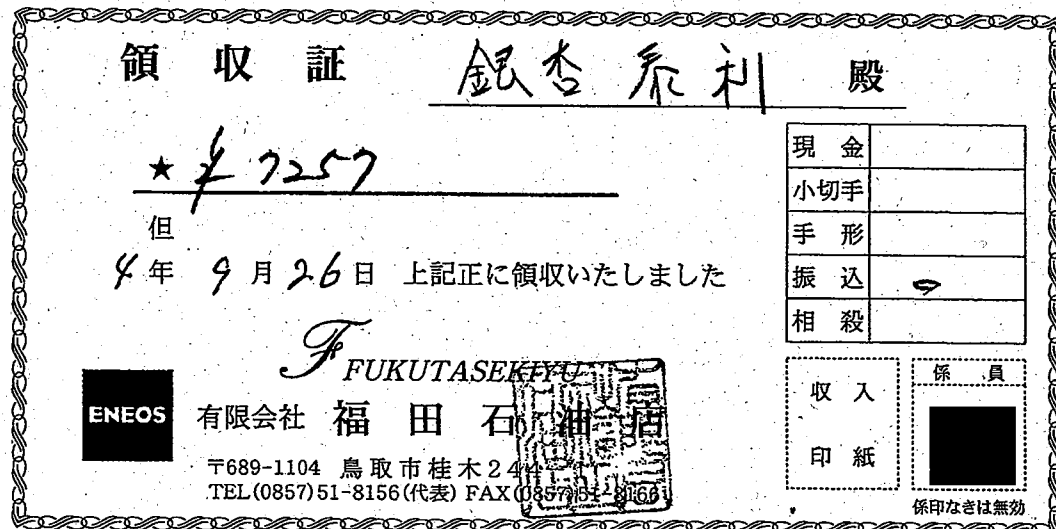 領収証
銀杏 泰利 殿
★ ¥7257
但
4年 9月26日 上記正に領収いたしました
現金
小切手
手形
振込
相殺
FUKUTASEKIYU
ENEOS
有限会社 福田石油店
〒689-1104 鳥取市桂木244
TEL(0857)51-8156(代表) FAX(0857)51-8166
収入
印紙
係員
係印なきは無効